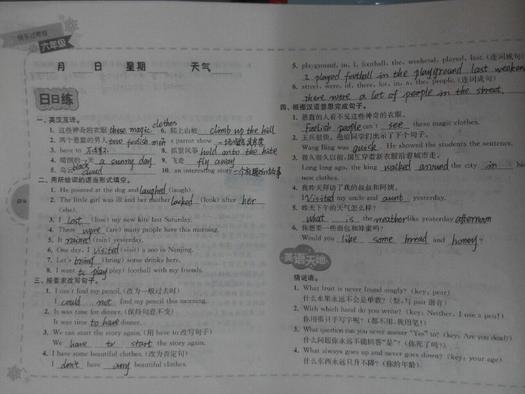 快乐过寒假
六年级
月 日 星期 天气
日日练
一、英汉互译。
1. 这些神奇的衣服 these magic clothes 6. 爬上山坡 climb up the hill
2. 两个愚蠢的男人 two foolish men
3. a parrot show
8. 抓紧风筝 hold onto the kite
4. 晴朗的一天 a sunny day 9. 飞走 fly away
5. 乌云 black cloud 10. an interesting story
二、用所给词的适当形式填空。
1. He pointed at the dog and laughed (laugh).
2. The little girl was ill and her mother looked (look) after her
(she).
3. I lost (lose) my new kite last Saturday.
4. There were (are) many people here this morning.
5. It rained (rain) yesterday.
6. One day, I visited (visit) a zoo in Nanjing.
7. Let's bring (bring) some drinks here.
8. I want to play (play) football with my friends.
三、按要求改写句子。
1. I can find my pencil. (改为一般过去时)
I could not find my pencil this morning.
2. It was time for dinner. (保持句意不变)
It was time to have dinner.
3. We can start the story again. (用 have to 改写句子)
We have to start the story again.
4. I have some beautiful clothes. (改为否定句)
I don't have any beautiful clothes.
5. playground, in, I, football, the, weekend, played, last (连词成句)
I played football in the playground last weekend
6. street, were, of, there, lot, in, a, the, people (连词成句)
there were a lot of people in the street.
四、根据汉语意思完成句子。
1. 愚蠢的人看不见这些神奇的衣服。
Foolish people can't see these magic clothes.
2.
Wang Bing was quick. He showed the students the sentences.
3. 很久很久以前,国王穿着新衣服沿着城市走。
Long long ago, the king walked around the city in his
new clothes.
4. 我昨天拜访了我的叔叔和阿姨。
I visited my uncle and aunt yesterday.
5. 昨天下午的天气怎么样?
What is the weather like yesterday afternoon
6. 你想要一些面包和蜂蜜吗?
Would you like some bread and honey?
英语天地
猜谜语。
1. What fruit is never found singly? (key: pear)
什么水果永远不会是单数?
2. With which hand do you write? (key: Neither, I use a pen!)
你用哪只手写字呢? (都不用,我用笔!)
3. What question can you never answer "Yes" to? (key: Are you dead?)
什么问题你永远不能回答"是"? (你死了吗?)
4. What always goes up and never goes down? (key: your age)
什么东西永远只升不降? (你的年龄)